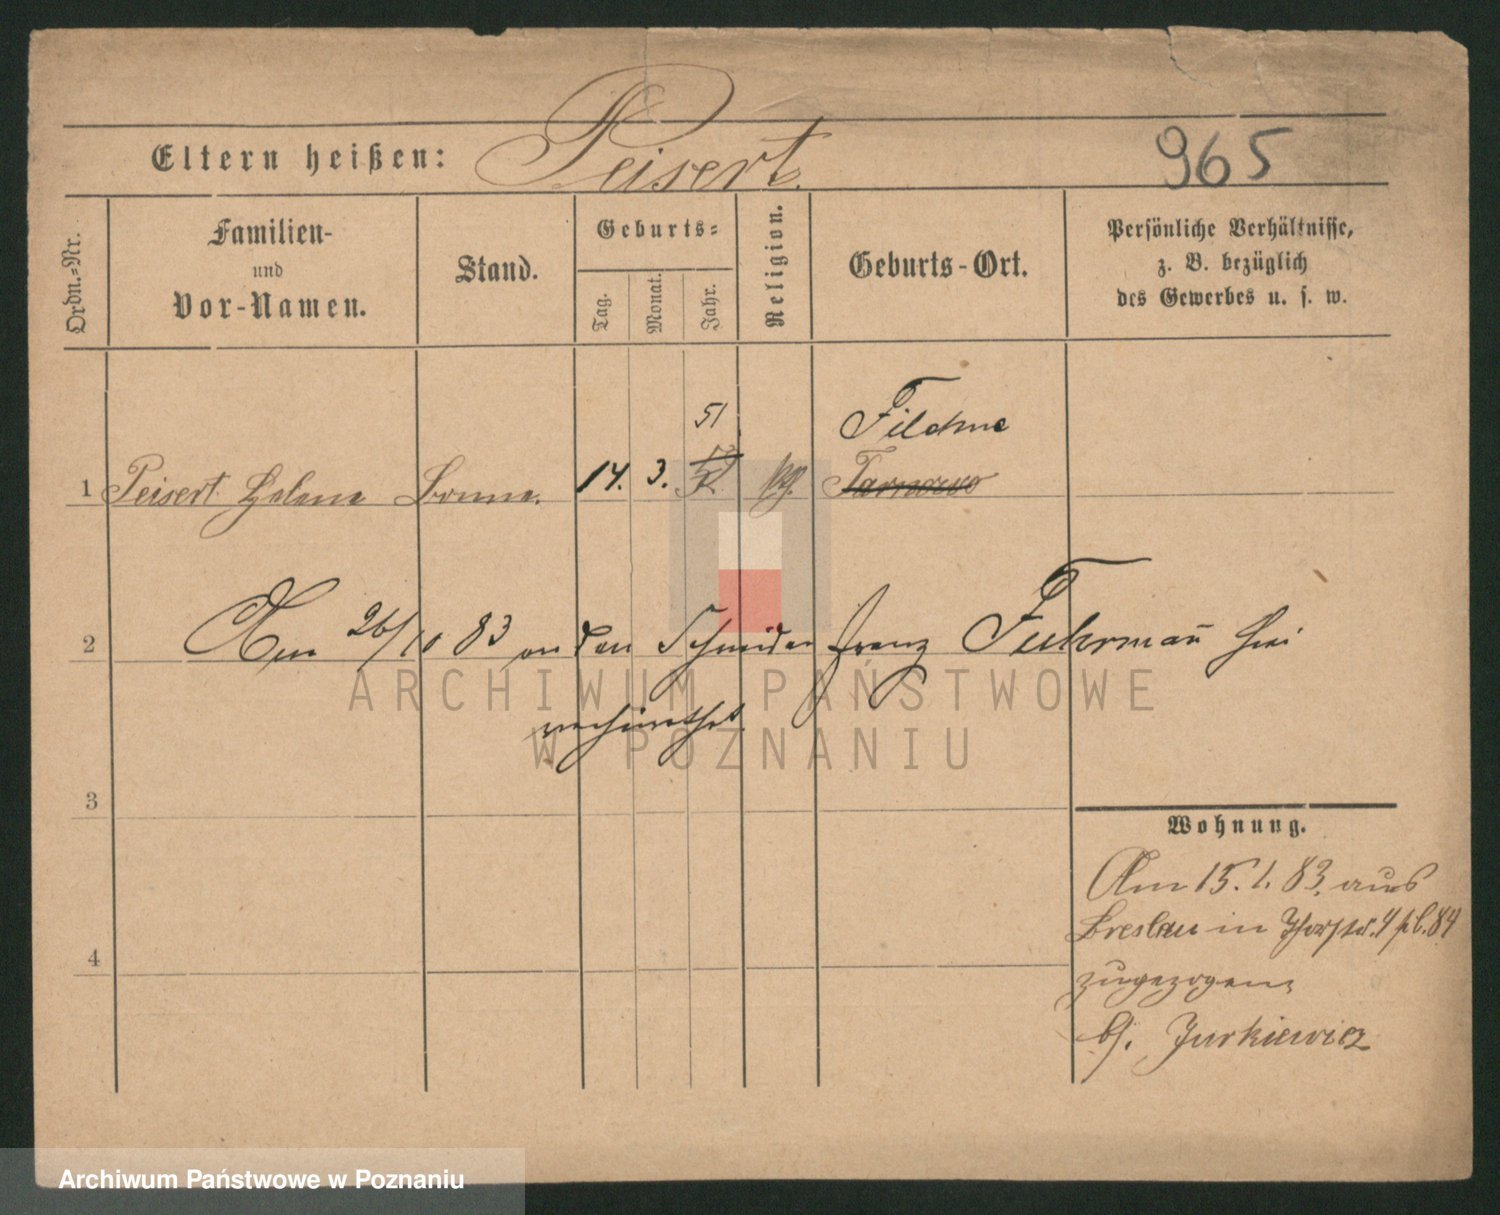 Eltern heißen: Peisert. 965
Ordn.=Nr.
Familien-
und
Vor-Namen.
Stand.
Geburts=
Tag.
Monat.
Jahr.
Religion.
Geburts-Ort.
Persönliche Verhältnisse,
z. B. bezüglich
des Gewerbes u. s. w.
51 Filehne
1 Peisert Helene Bonne. 14. 3. Tarnowo
2 Am 26/10 83 an den Schneider Franz Fuhrmañ hier
verheirathet
ARCHIWUM PAŃSTWOWE
W POZNANIU
3
Wohnung.
Am 15. 1. 83. aus
Breslau in
4
zugezogen
b/. Jurkiewicz
Archiwum Państwowe w Poznaniu